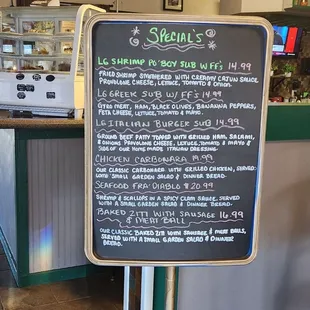 Special's
LG SHRIMP PO'BOY SUB W/FF'S 14.99
FRIED SHRIMP SMOTHERED WITH CREAMY CAJUN SAUCE,
PROVOLONE CHEESE, LETTUCE, TOMATO & ONION.
LG GREEK SUB W/FF'S 14.99
GYRO MEAT, HAM, BLACK OLIVES, BANANNA PEPPERS,
FETA CHEESE, LETTUCE, TOMATO & MAYO.
LG ITALIAN BURGER SUB 14.99
GROUND BEEF PATTY TOPPED WITH GRILLED HAM, SALAMI,
& ONIONS PROVOLONE CHEESE, LETTUCE, TOMATO & MAYO &
SIDE OF OUR HOME MADE ITALIAN DRESSING.
CHICKEN CARBONARA 19.99
OUR CLASSIC CARBONARA WITH GRILLED CHICKEN, SERVED
WITH SMALL GARDEN SALAD & DINNER BREAD.
SEAFOOD FRA DIABLO $20.99
SHRIMP & SCALLOPS IN A SPICY CLAM SAUCE, SERVED
WITH A SMALL GARDEN SALAD & DINNER BREAD.
BAKED ZITI WITH SAUSAGE 16.99
& MEAT BALL
OUR CLASSIC BAKED ZITI WITH SAUSAGE & MEAT BALLS,
SERVED WITH A SMALL GARDEN SALAD & DINNER
BREAD.